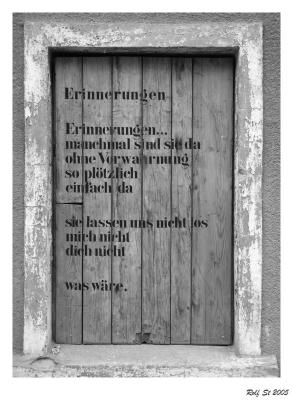 Erinnerungen
Erinnerungen...
manchmal sind sie da
ohne Vorwahrnung
so plötzlich
einfach da
sie lassen uns nicht los
mich nicht
dich nicht
was wäre.
Rolf St 2005